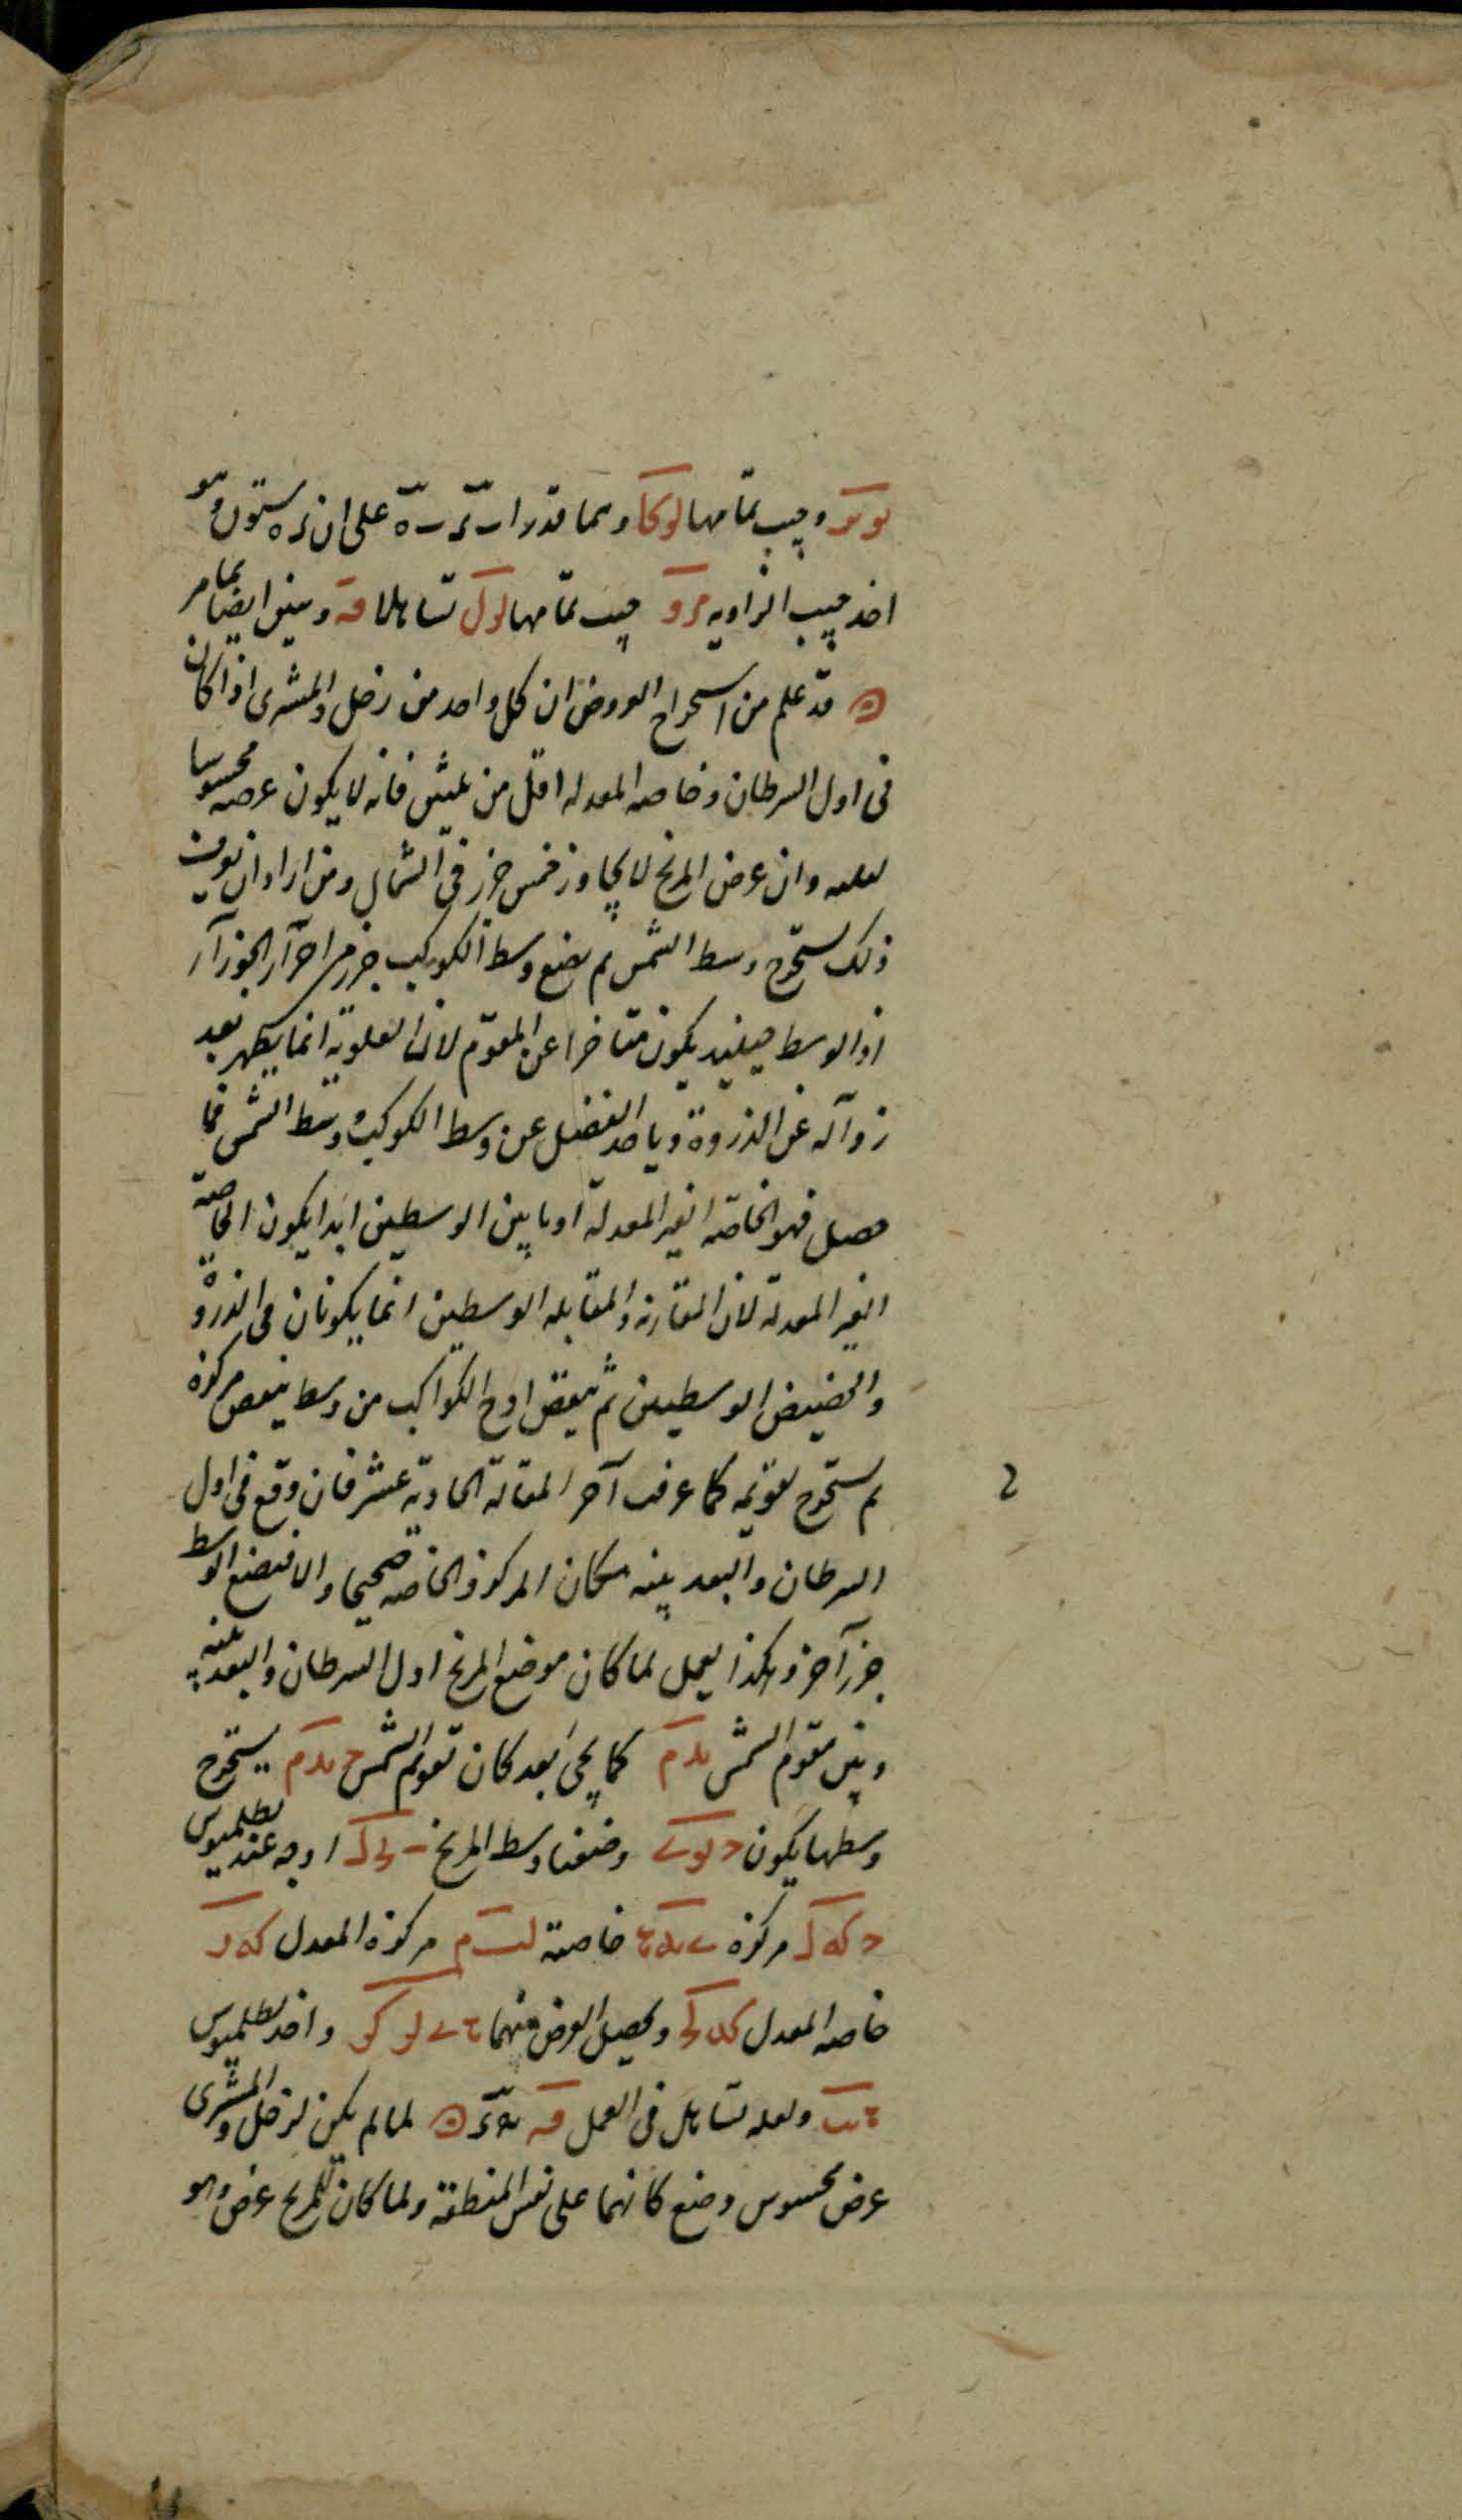 وجيب تمامها لوكا وهما قدرا على ان ره ستون وهو
اخذ جيب الزاويه مرو جيب تمامها لول تساهلا قه وبيني ايضا بما مر
قد علم من استحراج العروض ان كل واحد من زحل والمشترى اذا كان
فى اول السرطان وخاصه المعدله اقل من فانه لا يكون عرضه محسوسا
وان عرض المريخ لا يجاوز خمس جزء فى الشمال ومن اراد ان يعرف
ذلك يستخرج وسط الشمس ثم يضع وسط الكوكب جزء من اجزآء الجوزآء
اذ الوسط حينئذ يكون متاخرا عن المقوم لان العلوية انما يظهر بعد
زوآله عن الذروة وياخذ الفضل عن وسط الكوكب وسط الشمس فما
حصل فهو الخاصه الغير المعدلة اذ ما بين الوسطين ابدا يكون الخاصة
الغير المعدلة لان المقارنه والمقابله الوسطين انما يكونان فى الذروة
والحضيض الوسطيين ثم ينقص اوج الكواكب من وسط ينقص مركزه
ثم يستخرج تقويمه كما عرفت آخر المقالة الحادية عشر فان وقع فى اول
السرطان والبعد بينه مكان المركز والخاصه صحيحا والا فيضع الوسط
جزء آخر وهكذا يعمل لما كان موضع المريخ اول السرطان والبعد بينه
وبين مقوم الشمس يدم كما يجئ بعد كان تقويم الشمس ح يدم يستخرج
وسطها يكون وضعنا وسط المريخ اوجه عند بطلميوس
مركزه خاصته مركزه المعدل
خاصه المعدل ويحصل العرض منهما واخذ بطلميوس
ولعله تساهل فى العمل قه لما لم يكن لزحل والمشترى
عرض محسوس وضع كانهما على نفس المنطقة ولما كان للمريخ عرض وهو